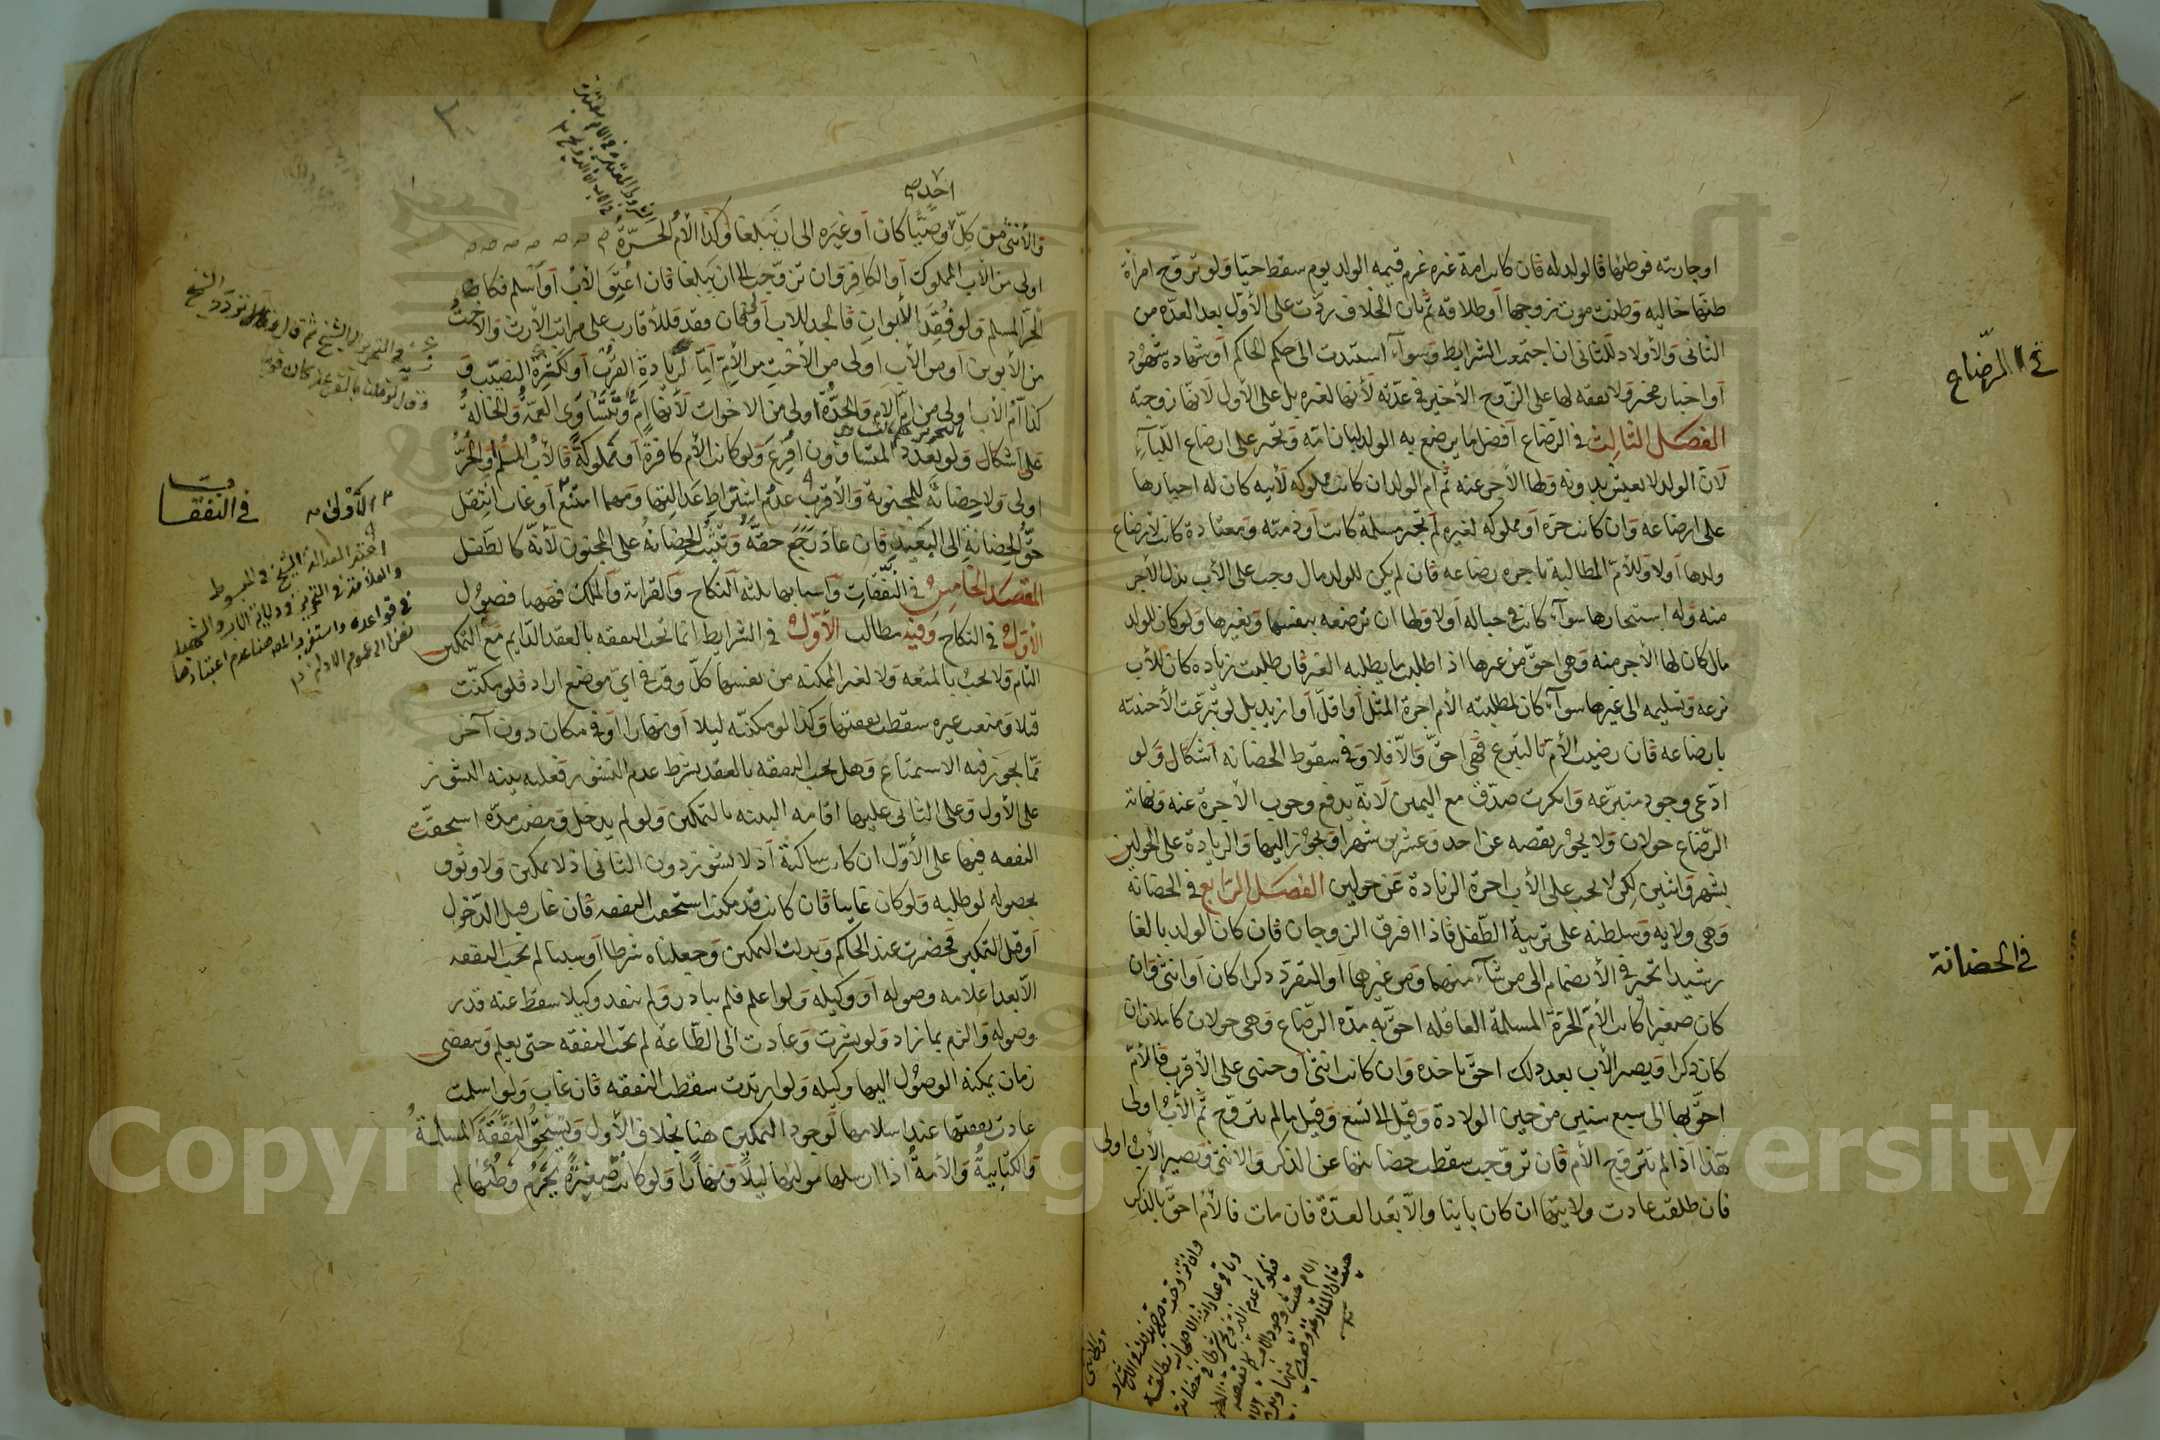 او جاريته فوطئها فالولد له فان كانت امة غيره غرم قيمة الولد يوم سقط حيّا ولو تزوج امرأة
ظنّها خالية وظنّت موت زوجها او طلاقه ثم بان الخلاف ردّت على الأوّل بعد العدّة من
الثانى والأولاد للثانى ان اجتمعت الشرايط وسوآء استندت الى حكم الحاكم او شهادة شهود
او اخبار مخبر ولا نفقة لها على الزّوج الأخير فى عدّته لأنها لغيره بل على الأول لأنها زوجته
الفصل الثالث فى الرّضاع افضل ما يرضع به الولد لبان امّه وتجبر على ارضاع اللّباء
لأن الولد لا يعيش بدونه ولها الأجر عنه ثم ام الولد ان كانت مملوكة لأبيه كان له اجبارها
على ارضاعه وان كانت حرة او مملوكة لغيره لم تجبر مسلمة كانت او ذمية ومعتادة كانت لارضاع
ولدها اولا وللأم المطالبة باجرة رضاعه فان لم يكن للولد مال وجب على الأب بذل الأجر
منه وله استيجارها سوآء كانت فى حباله اولا ولها ان ترضعه بنفسها وبغيرها ولو كان للولد
مال كان لها الأجر منه وهى احقّ من غيرها اذا طلبت ما يطلبه الغير فان طلبت زيادة كان للأب
نزعه وتسليمه الى غيرها سوآء كان ما طلبته الأم اجرة المثل او اقلّ او ازيد بل لو تبرّعت الأجنبية
بارضاعه فان رضيت الأمّ بالتبرع فهى احقّ والّا فلا وفى سقوط الحضانة اشكال ولو
ادّعى وجود متبرّعة وانكرت صدّق مع اليمين لانّه يدفع وجوب الأجرة عنه ونهاية
الرّضاع حولان ولا يجوز نقصه عن احد وعشرين شهرا ويجوز اليها والزيادة على الحولين
بشهر واثنين لكن لا يجب على الأب اجرة الزيادة عن حولين الفصل الرابع فى الحضانة
وهى ولاية وسلطنة على تربية الطّفل فاذا افترق الزوجان فان كان الولد بالغا
رشيدا تخيّر فى الأنضمام الى من شآء منهما ومن غيرهما او التفرّد ذكرا كان او انثى وان
كان صغيرا كانت الأمّ الحرة المسلمة العاقلة احقّ به مدّة الرّضاع وهى حولان كاملان ان
كان ذكرا ويصير الأب بعد ذلك احقّ باخذه وان كانت انثى او خنثى على الأقرب فالأمّ
احقّ بها الى سبع سنين من حين الولادة وقيل الى تسع وقيل ما لم تتزوّج ثم الأب اولى
هذا اذا لم تتزوّج الأم فان تزوّجت سقطت حضانتها عن الذكر والانثى ويصير الأب اولى
فان طلقت عادت ولايتها ان كان باينا والّا بعد العدّة فان مات فالأم احقّ بالذكر
فى الرّضاع
فى الحضانة
احد
والأنثى من كلّ وصيّا كان او غيره الى ان يبلغا وكذا الأم الحرّة
اولى من الأب المملوك او الكافر وان تزوّجت الى ان يبلغا فان اعتق الأب او اسلم فكان
الحرّ المسلم ولو فقد الأبوان فالجد للأب اولى فان فقد فللأقارب على مراتب الأرث والأخت
من الأبوين او من الأب اولى من الأخت من الأم امّا لزيادة القرب او لكثرة النصيب و
كذا امّ الأب اولى من امّ الام والجدّة اولى من الاخوات لأنها امّ وتتساوى العمّة والخالة
على اشكال ولو تعدّد المتساوون اقرع ولو كانت الأم كافرة او مملوكة فالأب المسلم او الحرّ
اولى ولا حضانة للمجنونة والأقرب عدم اشتراط عدالتها ومهما امتنع او غاب انتقل
حقّ الحضانة الى البعيد فان عاد رجع حقّه وتثبت الحضانة على المجنون لأنّه كالطفل
المقصد الخامس فى النّفقات واسبابها ثلثة النكاح والقرابة والملك فههنا فصول
الأوّل فى النكاح وفيه مطالب الأوّل فى الشرايط انما تجب النفقة بالعقد الدّايم مع التمكين
التام ولا تجب بالمتعة ولا لغير الممكنة من نفسها كلّ وقت فى اىّ موضع اراد فلو مكنت
قبلا ومنعت غيره سقطت نفقتها وكذا لو مكنته ليلا او نهارا او فى مكان دون آخر
ممّا يجوز فيه الاستمتاع وهل تجب النفقة بالعقد بشرط عدم النشوز فعليه بينة النشوز
على الأول وعلى الثانى عليها اقامة البينة بالتمكين ولو لم يدخل ومضت مدّة استحقت
النفقة فيها على الأوّل ان كانت ساكتة اذ لا نشوز دون الثانى اذ لا تمكين ولا وثوق
بحصوله لو طلبه ولو كان غايبا فان كانت قد مكنت استحقت النفقة فان غاب قبل الدّخول
او قبل التمكين فحضرت عند الحاكم وبذلت التمكين وجعلناه شرطا او سببا لم تجب النفقة
الّا بعد اعلامه وصوله او وكيله ولو اعلم فلم يبادر ولم ينفذ وكيلا سقط عنه قدر
وصوله والزم بما زاد ولو نشزت وعادت الى الطّاعة لم تجب النفقة حتى يعلم وينقضى
زمان يمكنه الوصول اليها وكيله ولو ارتدت سقطت النفقة فان غاب ولو اسلمت
عادت نفقتها عند اسلامها لوجود التمكين هنا بخلاف الأول ويستحقّ النفقة المسلمة
والكتابية والأمة اذا ارسلها مولاها ليلا ونهارا ولو كانت صغيرة يحرم وطئها لم
فى النفقات
الأولى